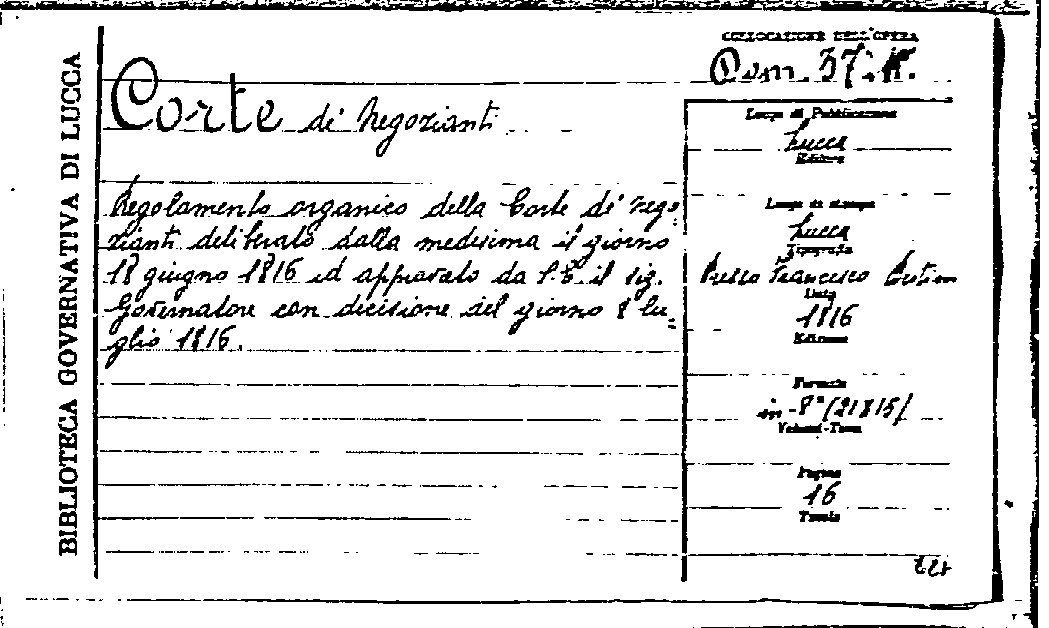 BIBLIOTECA GOVERNATIVA DI LUCCA
COLLOCAZIONE DELL'OPERA
Dom. 37.
Corte de' Negozianti
Regolamento organico della Corte de' nego=
zianti deliberato dalla medesima il giorno
18 giugno 1816 ed approvato da S. E. il sig.
Governatore con decisione del giorno 8 lu=
glio 1816.
Luogo di Pubblicazione
Lucca
Editore
Luogo di stampa
Lucca
Tipografia
Presso Francesco Bertini
Data
1816
Edizione
Formato
in-8°
Volumi-Tomi
Pagine
16
Tavole